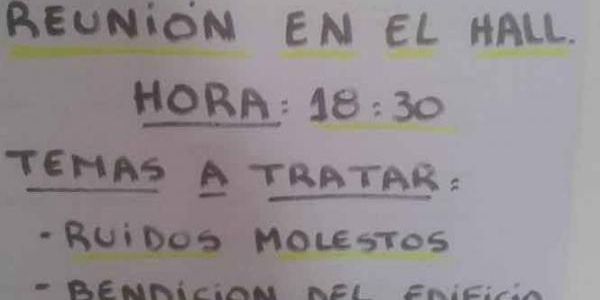 REUNIÓN EN EL HALL.
HORA: 18:30
TEMAS A TRATAR:
- RUiDOS MOLESTOS
- BENDiCiON DEL EDiFiCiO